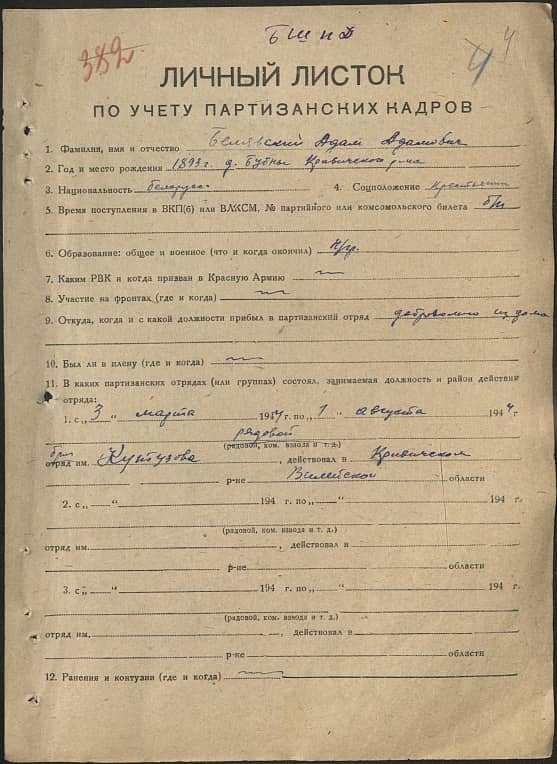 БШПД
4
382
4
ЛИЧНЫЙ ЛИСТОК
ПО УЧЕТУ ПАРТИЗАНСКИХ КАДРОВ
1. Фамилия, имя и отчество Белявский Адам Адамович
2. Год и место рождения 1893 г. д. Бубны Кривичского р-на
3. Национальность белорус 4. Соцположение Крестьянин
5. Время поступления в ВКП(б) или ВЛКСМ, № партийного или комсомольского билета б/п
6. Образование: общее и военное (что и когда окончил) н/гр.
7. Каким РВК и когда призван в Красную Армию —
8. Участие на фронтах (где и когда) —
9. Откуда, когда и с какой должности прибыл в партизанский отряд добровольно из дома
10. Был ли в плену (где и когда) —
11. В каких партизанских отрядах (или группах) состоял, занимаемая должность и район действий
отряда:
1. с „ 3 " марта 1944 г. по „ 1 " августа 1944 г
рядовой
(рядовой, ком. взвода и т. д.)
бриг
отряд им. Кутузова, действовал в Кривичском
р-не Вилейской области
2. с „ " 194 г. по „ " 194 г.
(рядовой, ком. взвода и т. д.)
отряд им. , действовал в
р-не области
3. с „ " 194 г. по „ " 194 г.
(рядовой, ком. взвода и т. д.)
отряд им. , действовал в
р-не области
12. Ранения и контузии (где и когда) —